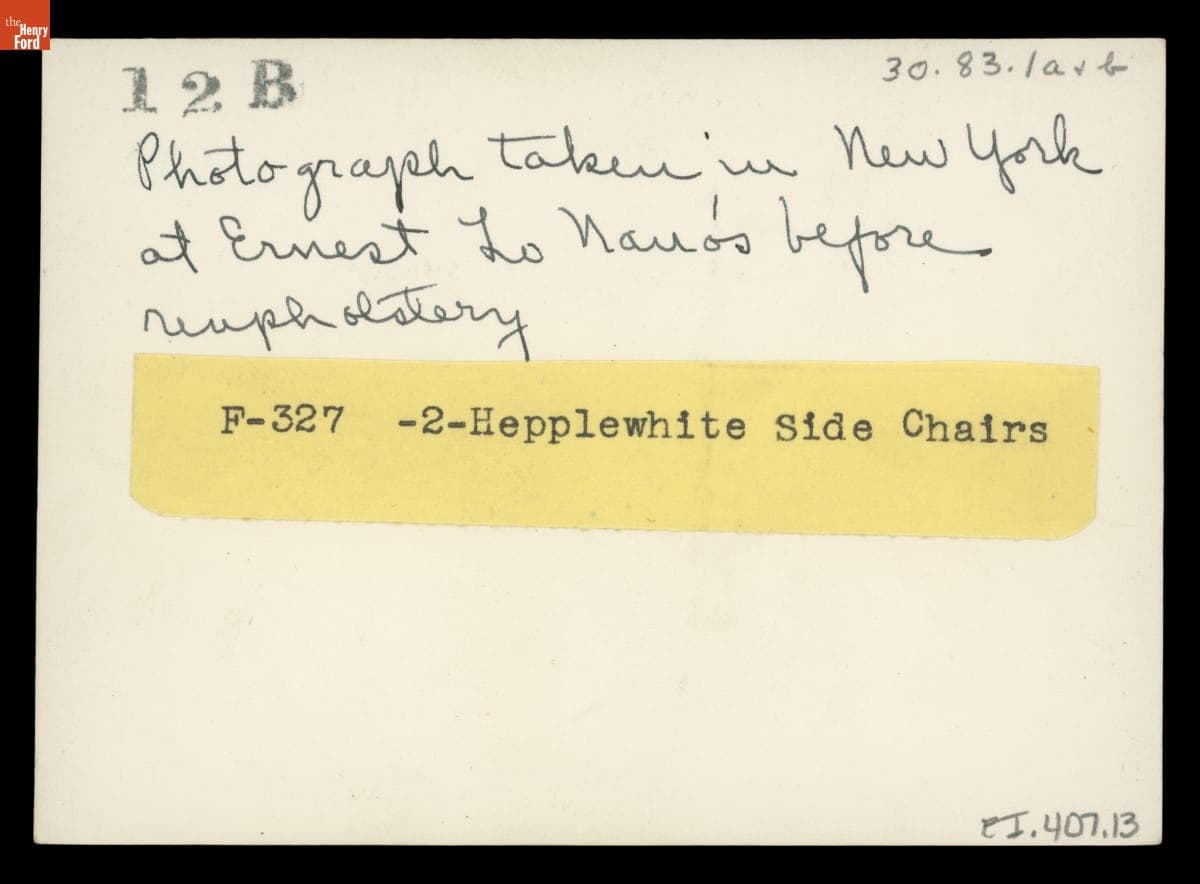 the
Henry
Ford
12B
30.83.1a+b
Photograph taken in New York
at Ernest Lo Nano's before
reupholstery
F-327 -2-Hepplewhite Side Chairs
EI.407.13